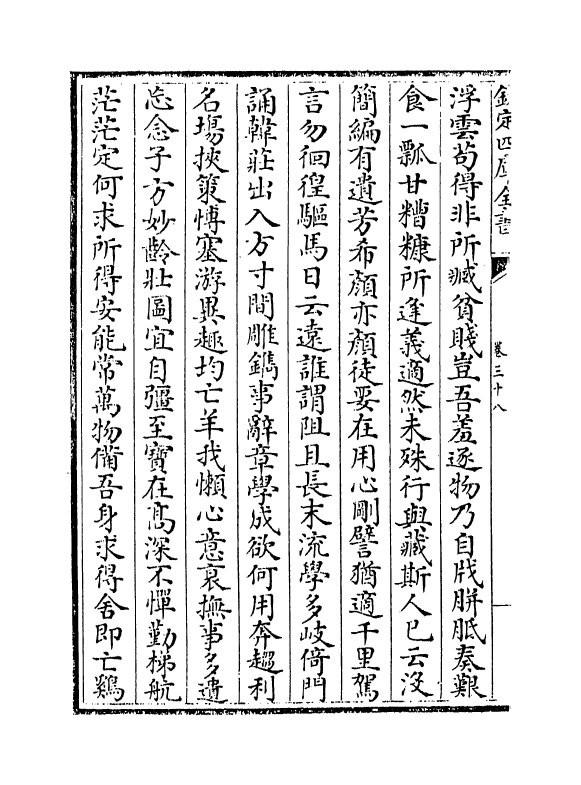 欽定四庫全書
卷三十八
浮雲苟得非所臧貧賤豈吾羞逐物乃自戕胼胝奏艱
食一瓢甘糟糠所逢義適然未殊行與藏斯人已云沒
簡編有遺芳希顔亦顔徒要在用心剛譬猶適千里駕
言勿徊徨驅馬日云遠誰謂阻且長末流學多岐倚門
誦韓莊出入方寸間雕鐫事辭章學成欲何用奔趨利
名場挾策愽塞游異趣均亡羊我懶心意衰撫事多遺
忘念子方妙齡壯圖宜自彊至寶在髙深不憚勤梯航
茫茫定何求所得安能常萬物備吾身求得舍即亡鷄